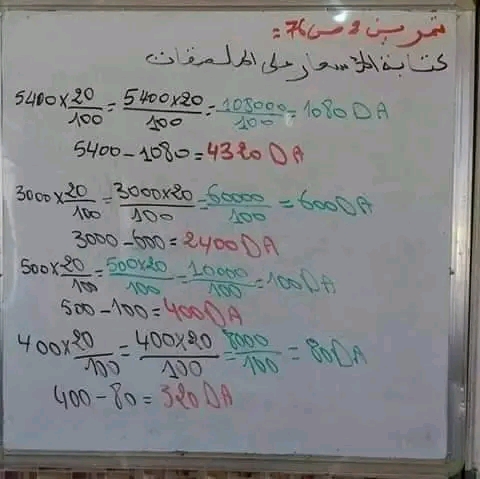 تمرين 2 ص 76 :
كتابة الأسعار على الملصقات
5400 × 20/100 = 5400×20/100 = 108000/100 = 1080 DA
5400 - 1080 = 4320 DA
3000 × 20/100 = 3000×20/100 = 60000/100 = 600 DA
3000 - 600 = 2400 DA
500 × 20/100 = 500×20/100 = 10000/100 = 100 DA
500 - 100 = 400 DA
400 × 20/100 = 400×20/100 = 8000/100 = 80 DA
400 - 80 = 320 DA